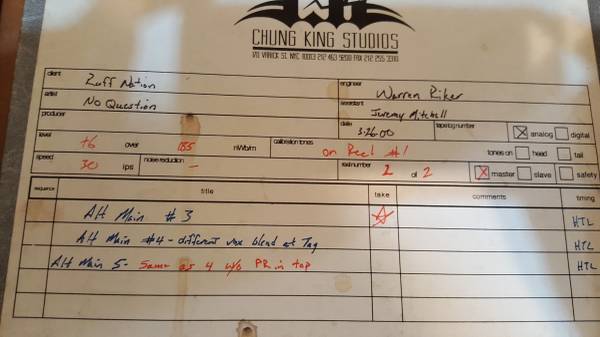 CHUNG KING STUDIOS
170 VARICK ST. NYC 10013 212 463 9200 FAX 212 255 3310
client Zuff Nation engineer Warren Riker
artist No Question assistant Jeremy Mitchell
producer date 3.26.00 tape log number analog digital
level +6 over 185 nWb/m calibration tones on Reel #1 tones on head tail
speed 30 ips noise reduction - reel number 2 of 2 master slave safety
sequence title take comments timing
Alt Main #3 HTL
Alt Main #4 - different vox blend at Tag HTL
Alt Main 5 - Same as 4 w/o PR in top HTL